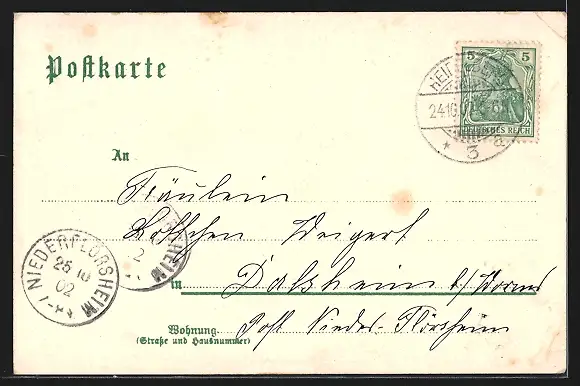 Postkarte
5 5
DEUTSCHES REICH
24.10.
3 a
An
Fräulein
Lottchen Weigert
in Dalsheim b/Worms
Wohnung
(Straße und Hausnummer)
Post Nieder-Flörsheim
NIEDERFLÖRSHEIM
25 10
02
SHEIM
2